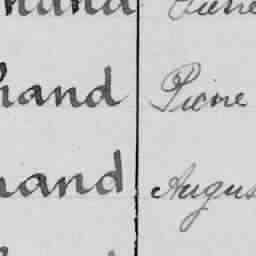 hand Pierre
hand Augus